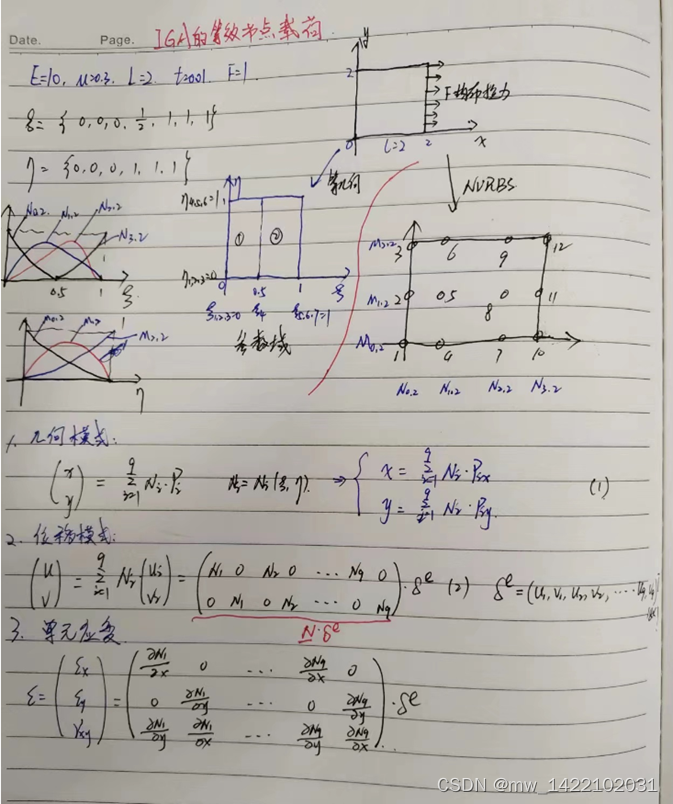 Date. Page. IGA的等效节点载荷
E=10, μ=0.3. L=2. t=0.01 F=1.
ξ = { 0, 0, 0, 1/2, 1, 1, 1}
η = {0, 0, 0, 1, 1, 1}
y
2
F均布拉力
0 L=2 2 x
NURBS
N0.2 N1.2 N2.2
N3.2
0.5 1 ξ
η4.5.6=1
η
① ②
η1,2,3=0
0 0.5 1 ξ
ξ1,2,3=0 ξ4 ξ5.6.7=1
参数域
M2,2 3 6 9 12
M1,2 2 5 8 11
M0,2 1 4 7 10
N0.2 N1.2 N2.2 N3.2
M0.2 M2.2
1
η
1. 几何模式:
(x y) = Σ(i=1..9) Ni·Pi Ni = Ni(ξ, η). ⇒ { x = Σ(i=1..9) Ni·Pix
y = Σ(i=1..9) Ni·Piy (1)
2. 位移模式:
(u v) = Σ(i=1..9) Ni (ui vi) = (N1 0 N2 0 ⋯ N9 0
0 N1 0 N2 ⋯ 0 N9)·δe (2) δe = (u1, v1, u2, v2, ⋯ u9, v9)
N·δe
3. 单元应变
ε = (εx εy γxy) = (∂N1/∂x 0 ⋯ ∂N9/∂x 0
0 ∂N1/∂y ⋯ 0 ∂N9/∂y
∂N1/∂y ∂N1/∂x ⋯ ∂N9/∂y ∂N9/∂x)·δe
CSDN @mw_1422102031